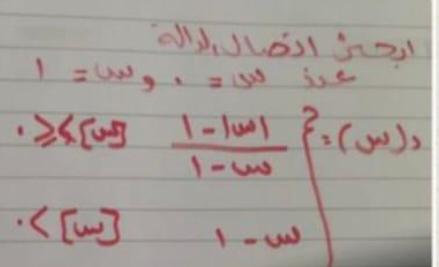 ابحث اتصال الدالة
عند س = ٠ و س = ١
د(س) = { |س| - ١ / س - ١ [س] ≥ ٠
س - ١ [س] < ٠